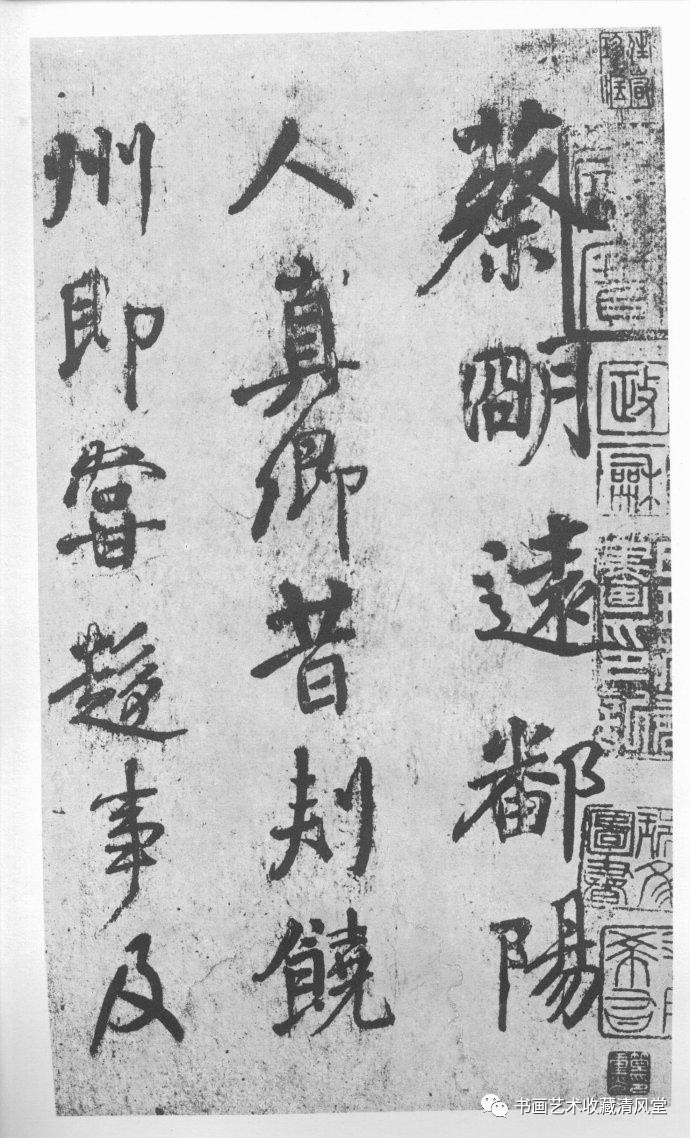 蔡明遠鄱陽
人真卿昔刾饒
州即甞趍事及
书画艺术收藏清风堂